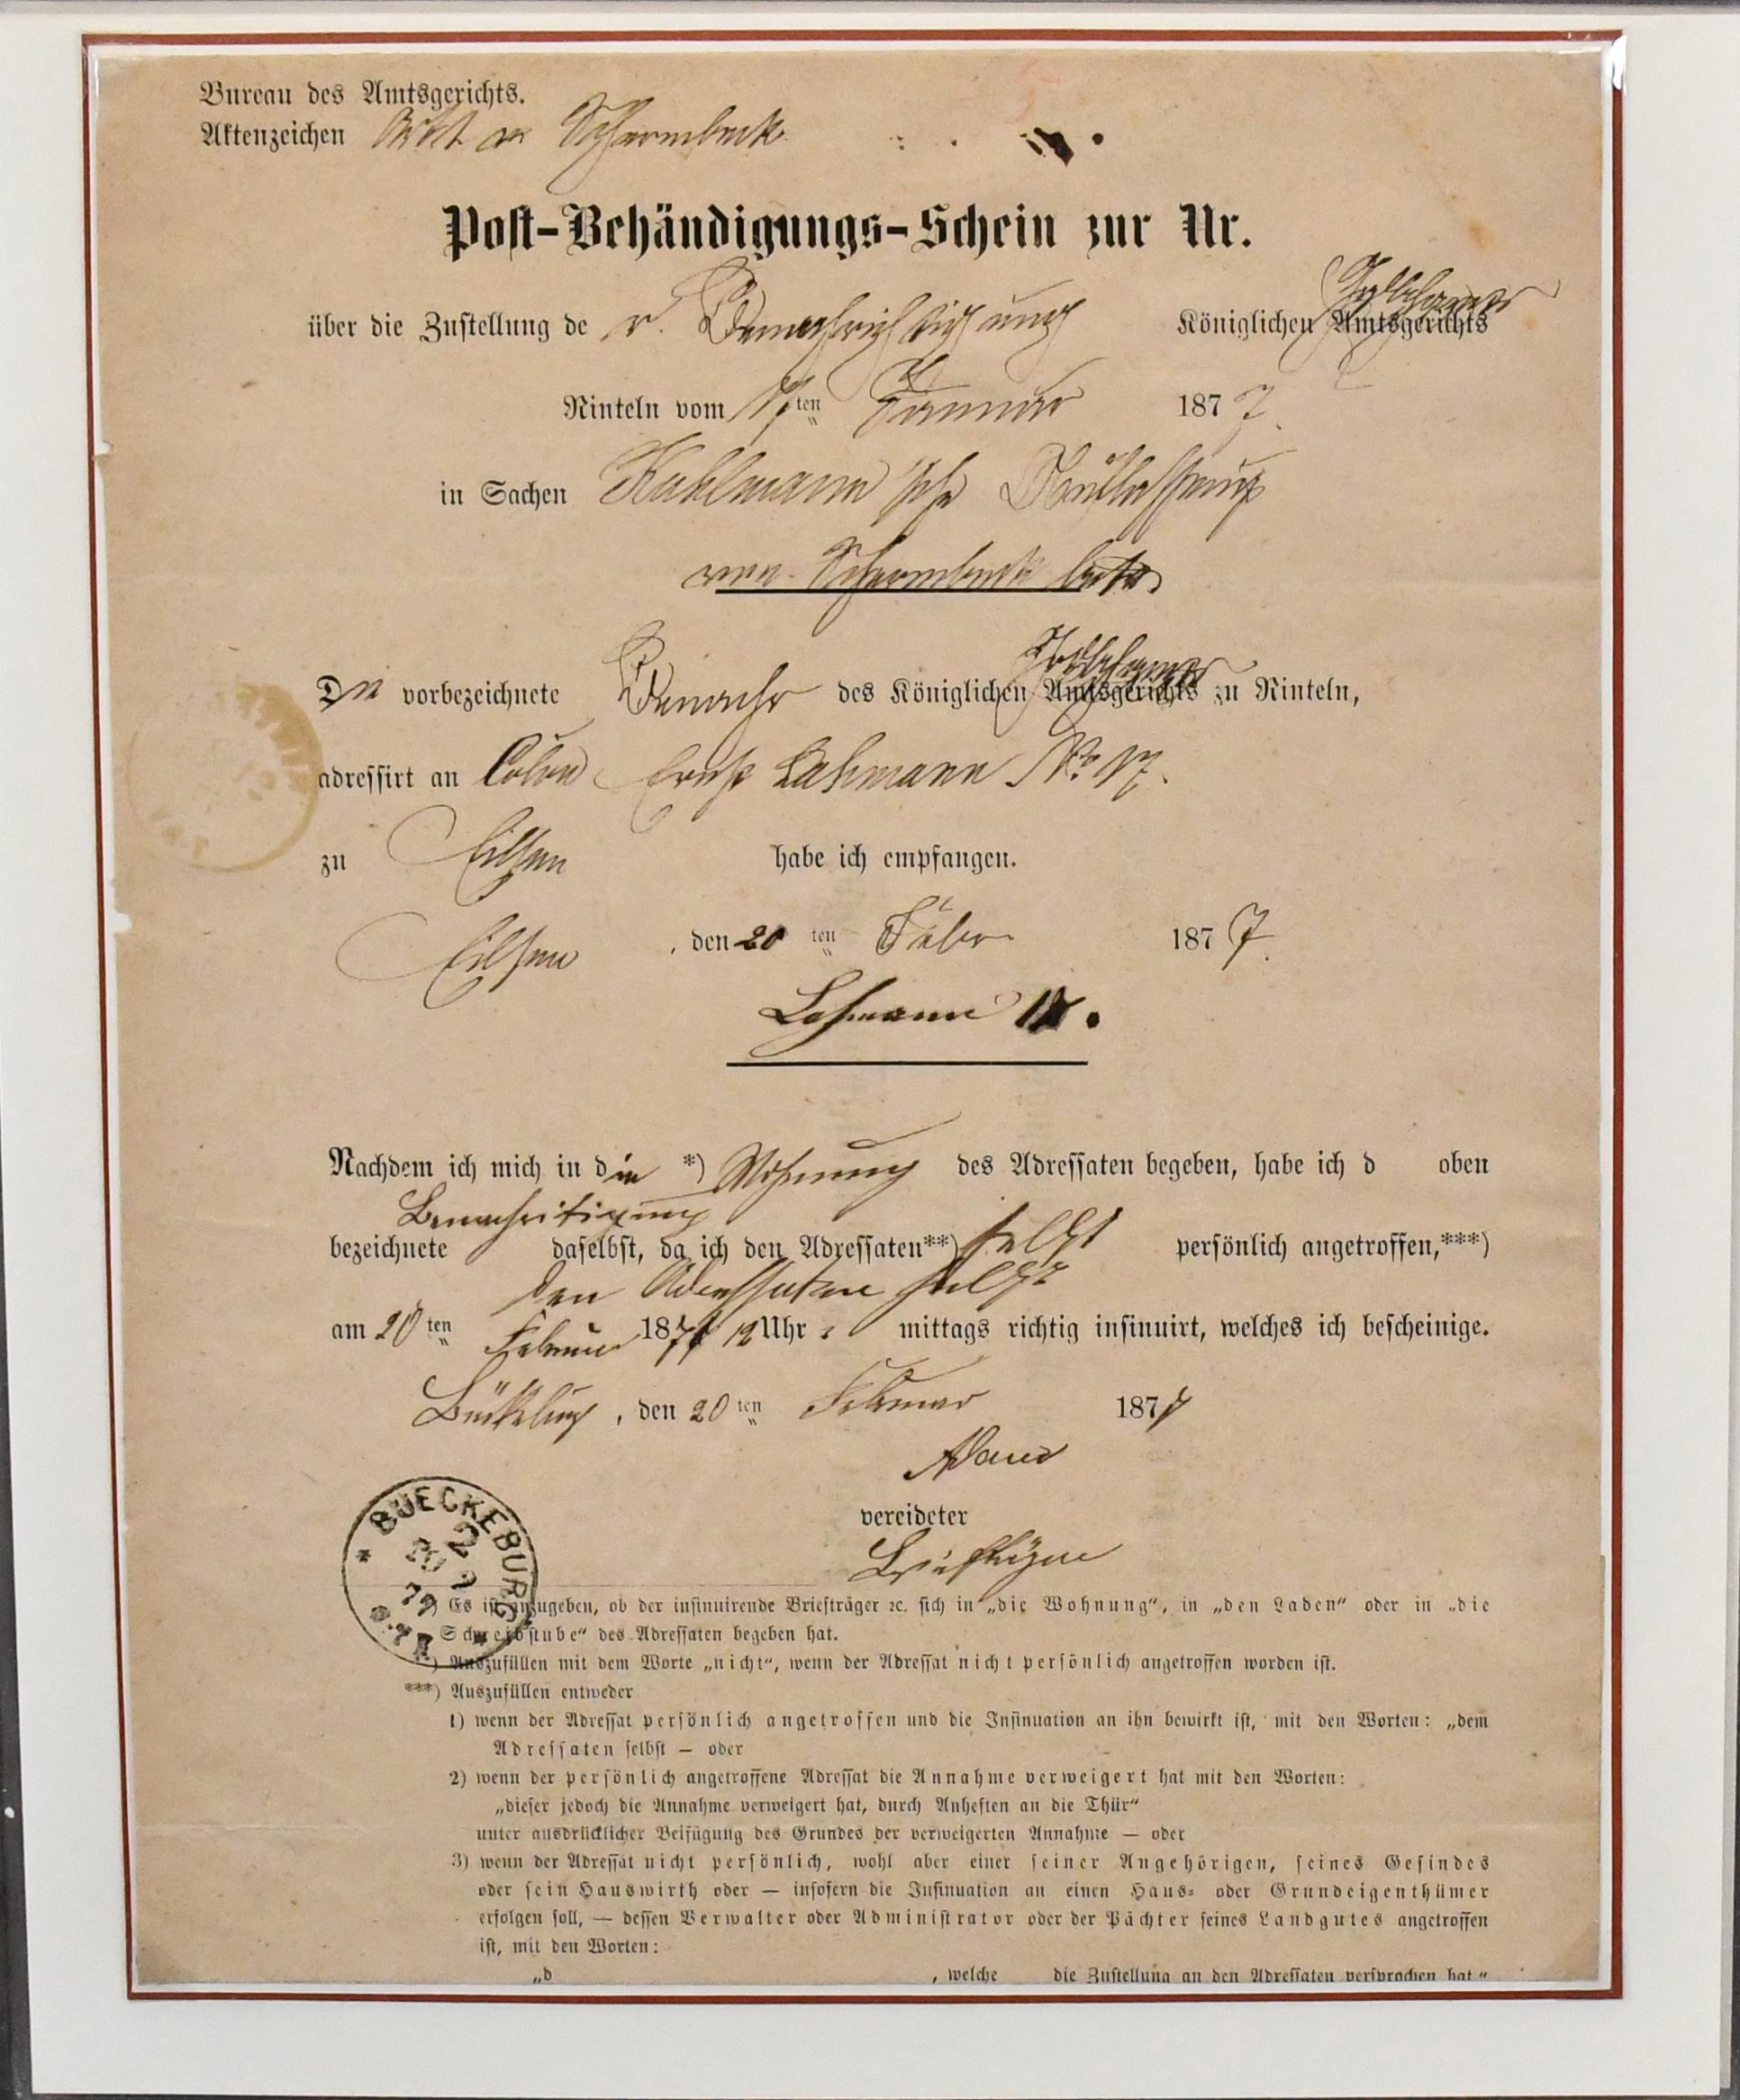 Bureau des Amtsgerichts.
Aktenzeichen
Post-Behändigungs-Schein zur Nr.
über die Zustellung de r. Benachrichtigung Königlichen Amtsgerichts
Rinteln vom 17 ten Januar 187 7.
in Sachen
Die vorbezeichnete Benachr des Königlichen Amtsgerichts zu Rinteln,
adressirt an Colon Ernst Lahmann No 17.
zu Eilsen habe ich empfangen.
Eilsen, den 20 ten Febr 187 7.
Lahmann 17.
Nachdem ich mich in die *) Wohnung des Adressaten begeben, habe ich d oben
Benachritigung
bezeichnete daselbst, da ich den Adressaten**) selbst persönlich angetroffen,***)
den Adressaten selbst
am 20 ten Februar 1877 12 Uhr mittags richtig insinuirt, welches ich bescheinige.
Bückeburg, den 20 ten Februar 1877
vereideter
Briefträger
* BUECKEBURG *
*) Es ist anzugeben, ob der insinuirende Briefträger ꝛc. sich in „die Wohnung“, in „den Laden“ oder in „die
Schreibstube“ des Adressaten begeben hat.
) Auszufüllen mit dem Worte „nicht“, wenn der Adressat nicht persönlich angetroffen worden ist.
***) Auszufüllen entweder
1) wenn der Adressat persönlich angetroffen und die Insinuation an ihn bewirkt ist, mit den Worten: „dem
Adressaten selbst — oder
2) wenn der persönlich angetroffene Adressat die Annahme verweigert hat mit den Worten:
„dieser jedoch die Annahme verweigert hat, durch Anheften an die Thür“
unter ausdrücklicher Beifügung des Grundes der verweigerten Annahme — oder
3) wenn der Adressat nicht persönlich, wohl aber einer seiner Angehörigen, seines Gesindes
oder sein Hauswirth oder — insofern die Insinuation an einen Haus- oder Grundeigenthümer
erfolgen soll, — dessen Verwalter oder Administrator oder der Pächter seines Landgutes angetroffen
ist, mit den Worten:
„d , welche die Zustellung an den Adressaten versprochen hat“